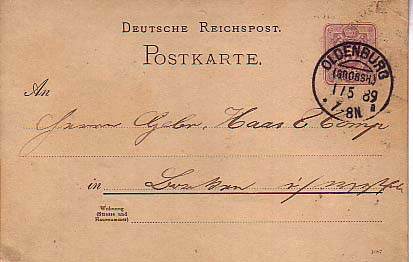 DEUTSCHE REICHSPOST.
POSTKARTE.
OLDENBURG
(GROSSH.)
1/5 89
7-8N
a
An
Herren Gebr. Haas & Comp
in Borken i/Westfalen
Wohnung
(Strasse und
Hausnummer)